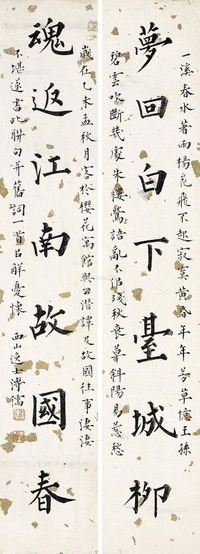 夢回白下臺城柳
一溪春水著雨楊花飛不起寂寞黃昏年年芳草憶王孫
碧雲吹斷幾處朱樓鶯語亂不似殘秋衰草斜陽易惹愁
魂返江南故國春
歲在乙未孟秋月客於櫻花寓館與公潛譚及故國往事淒淒
不堪遂書此聯句并舊詞一首以解憂懷 西山逸士溥儒